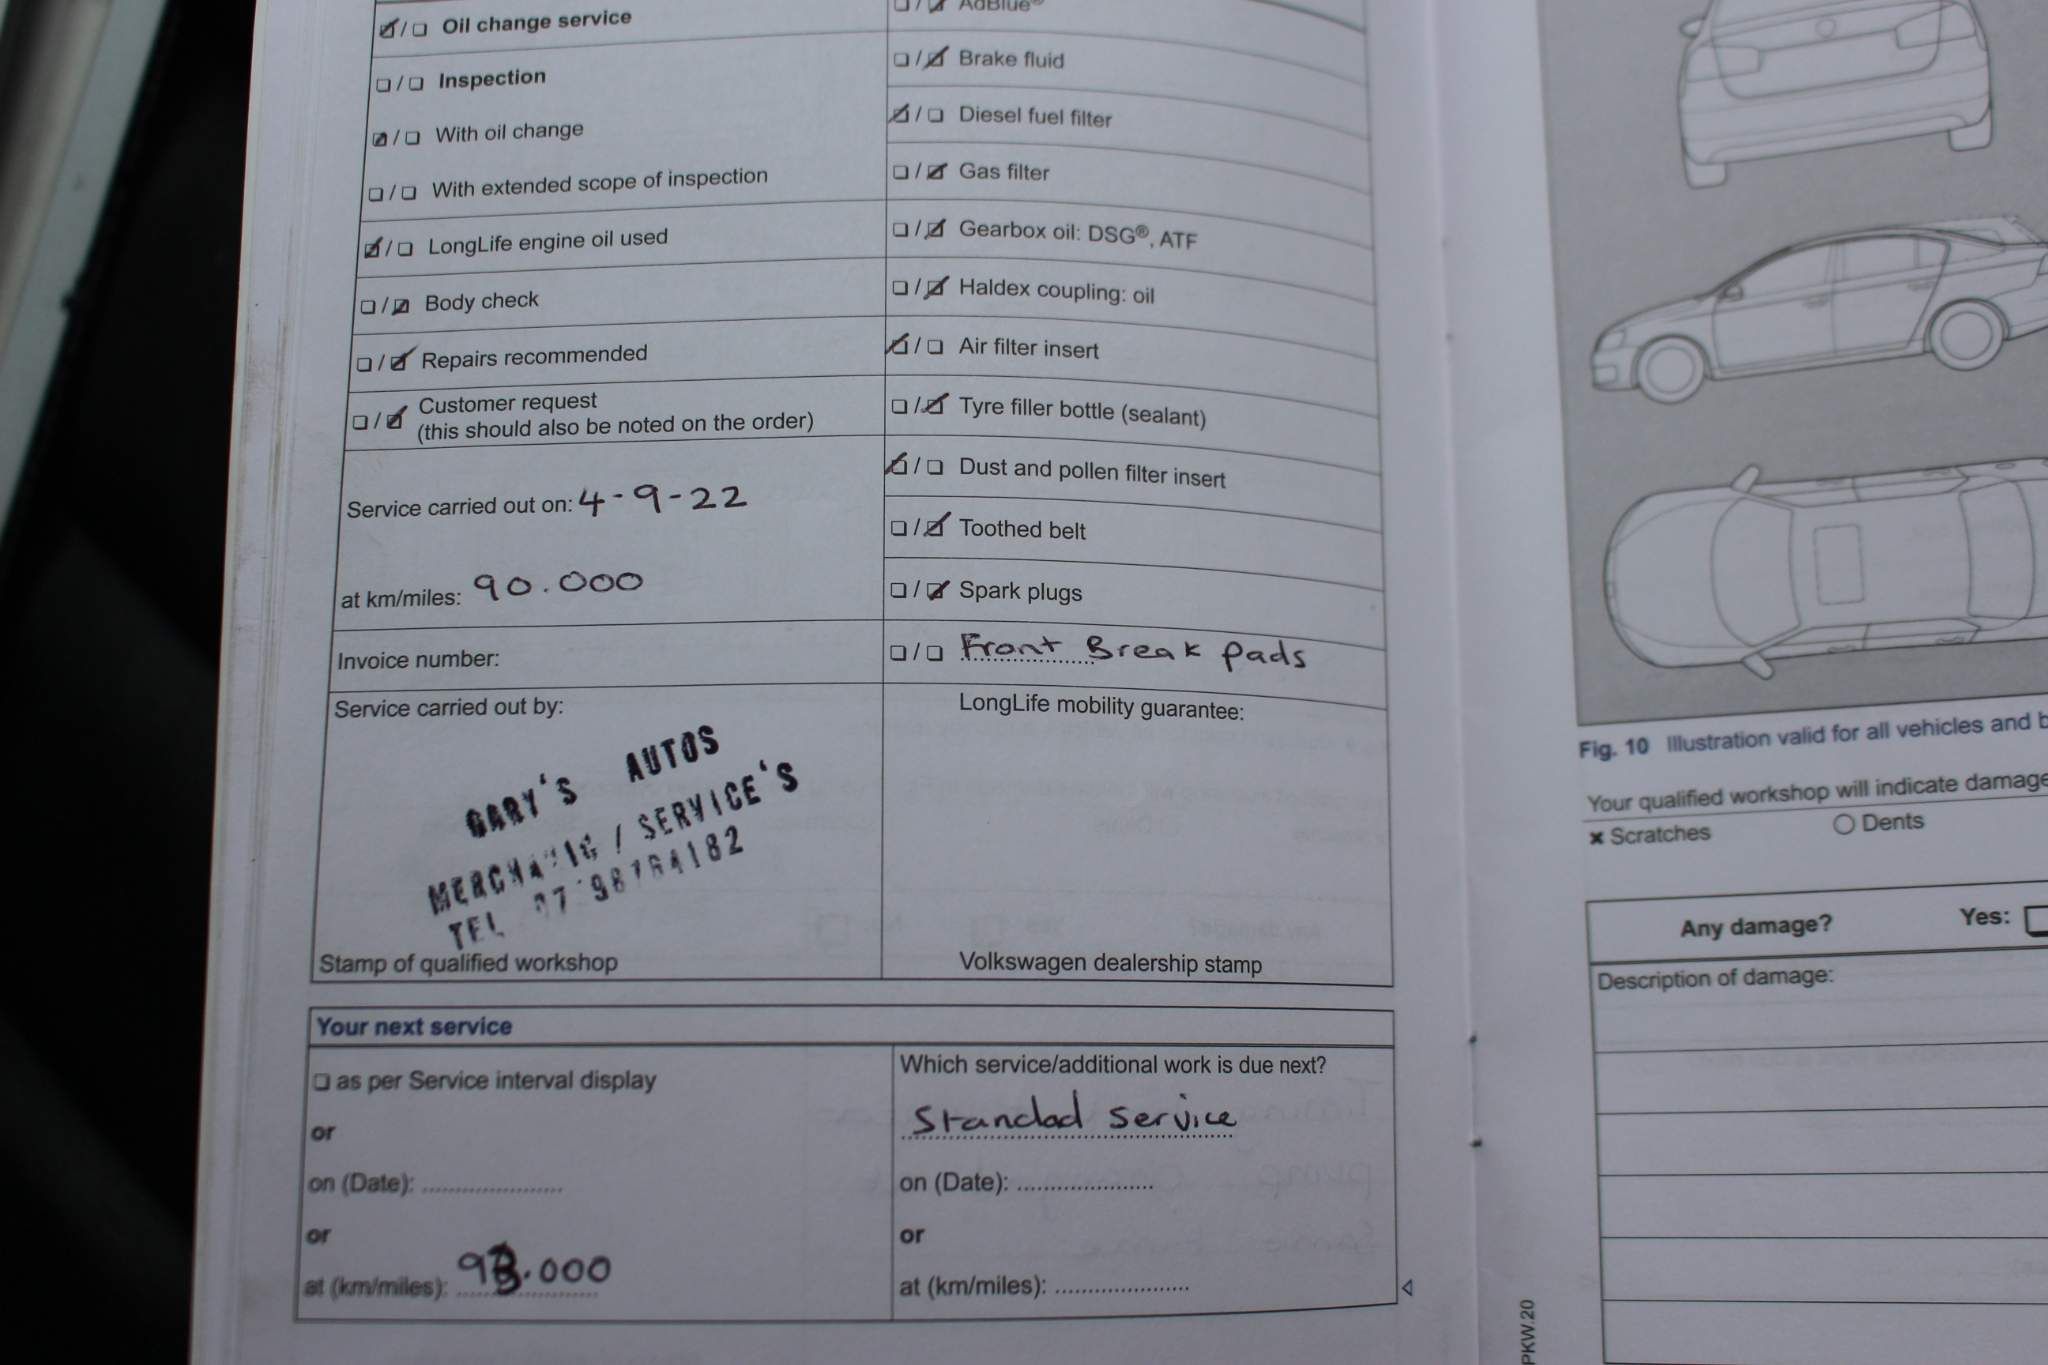 Oil change service
Inspection
With oil change
With extended scope of inspection
LongLife engine oil used
Body check
Repairs recommended
Customer request
(this should also be noted on the order)
Service carried out on: 4-9-22
at km/miles: 90.000
Invoice number:
Service carried out by:
GARY'S AUTOS
/ SERVICE'S
TEL
Stamp of qualified workshop
AdBlue®
Brake fluid
Diesel fuel filter
Gas filter
Gearbox oil: DSG®, ATF
Haldex coupling: oil
Air filter insert
Tyre filler bottle (sealant)
Dust and pollen filter insert
Toothed belt
Spark plugs
Front Break pads
LongLife mobility guarantee:
Volkswagen dealership stamp
Your next service
as per Service interval display
or
on (Date):
or
at (km/miles): 98.000
Which service/additional work is due next?
Standad service
on (Date):
or
at (km/miles):
Fig. 10 Illustration valid for all vehicles and
Your qualified workshop will indicate damage
Scratches
Dents
Any damage? Yes:
Description of damage:
PKW.20